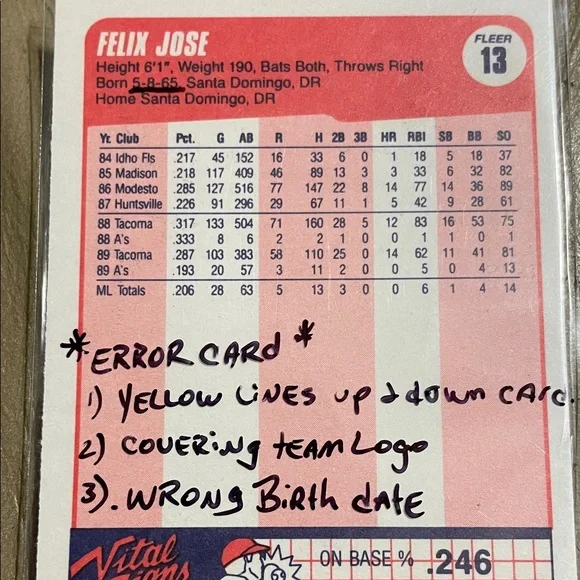 FELIX JOSE
FLEER
13
Height 6'1", Weight 190, Bats Both, Throws Right
Born 5-8-65, Santa Domingo, DR
Home Santa Domingo, DR
Yr. Club Pct. G AB R H 2B 3B HR RBI SB BB SO
84 Idho Fls .217 45 152 16 33 6 0 1 18 5 18 37
85 Madison .218 117 409 46 89 13 3 3 33 6 32 82
86 Modesto .285 127 516 77 147 22 8 14 77 14 36 89
87 Huntsville .226 91 296 29 67 11 1 5 42 9 28 61
88 Tacoma .317 133 504 71 160 28 5 12 83 16 53 75
88 A's .333 8 6 2 2 1 0 0 1 1 0 1
89 Tacoma .287 103 383 58 110 25 0 14 62 11 41 81
89 A's .193 20 57 3 11 2 0 0 5 0 4 13
ML Totals .206 28 63 5 13 3 0 0 6 1 4 14
*ERROR CARD*
1) YELLOW LINES up & down CARd.
2) COVERING TEAM LOGO
3). WRONG BIRTH dATE
Vital Signs
ON BASE % .246